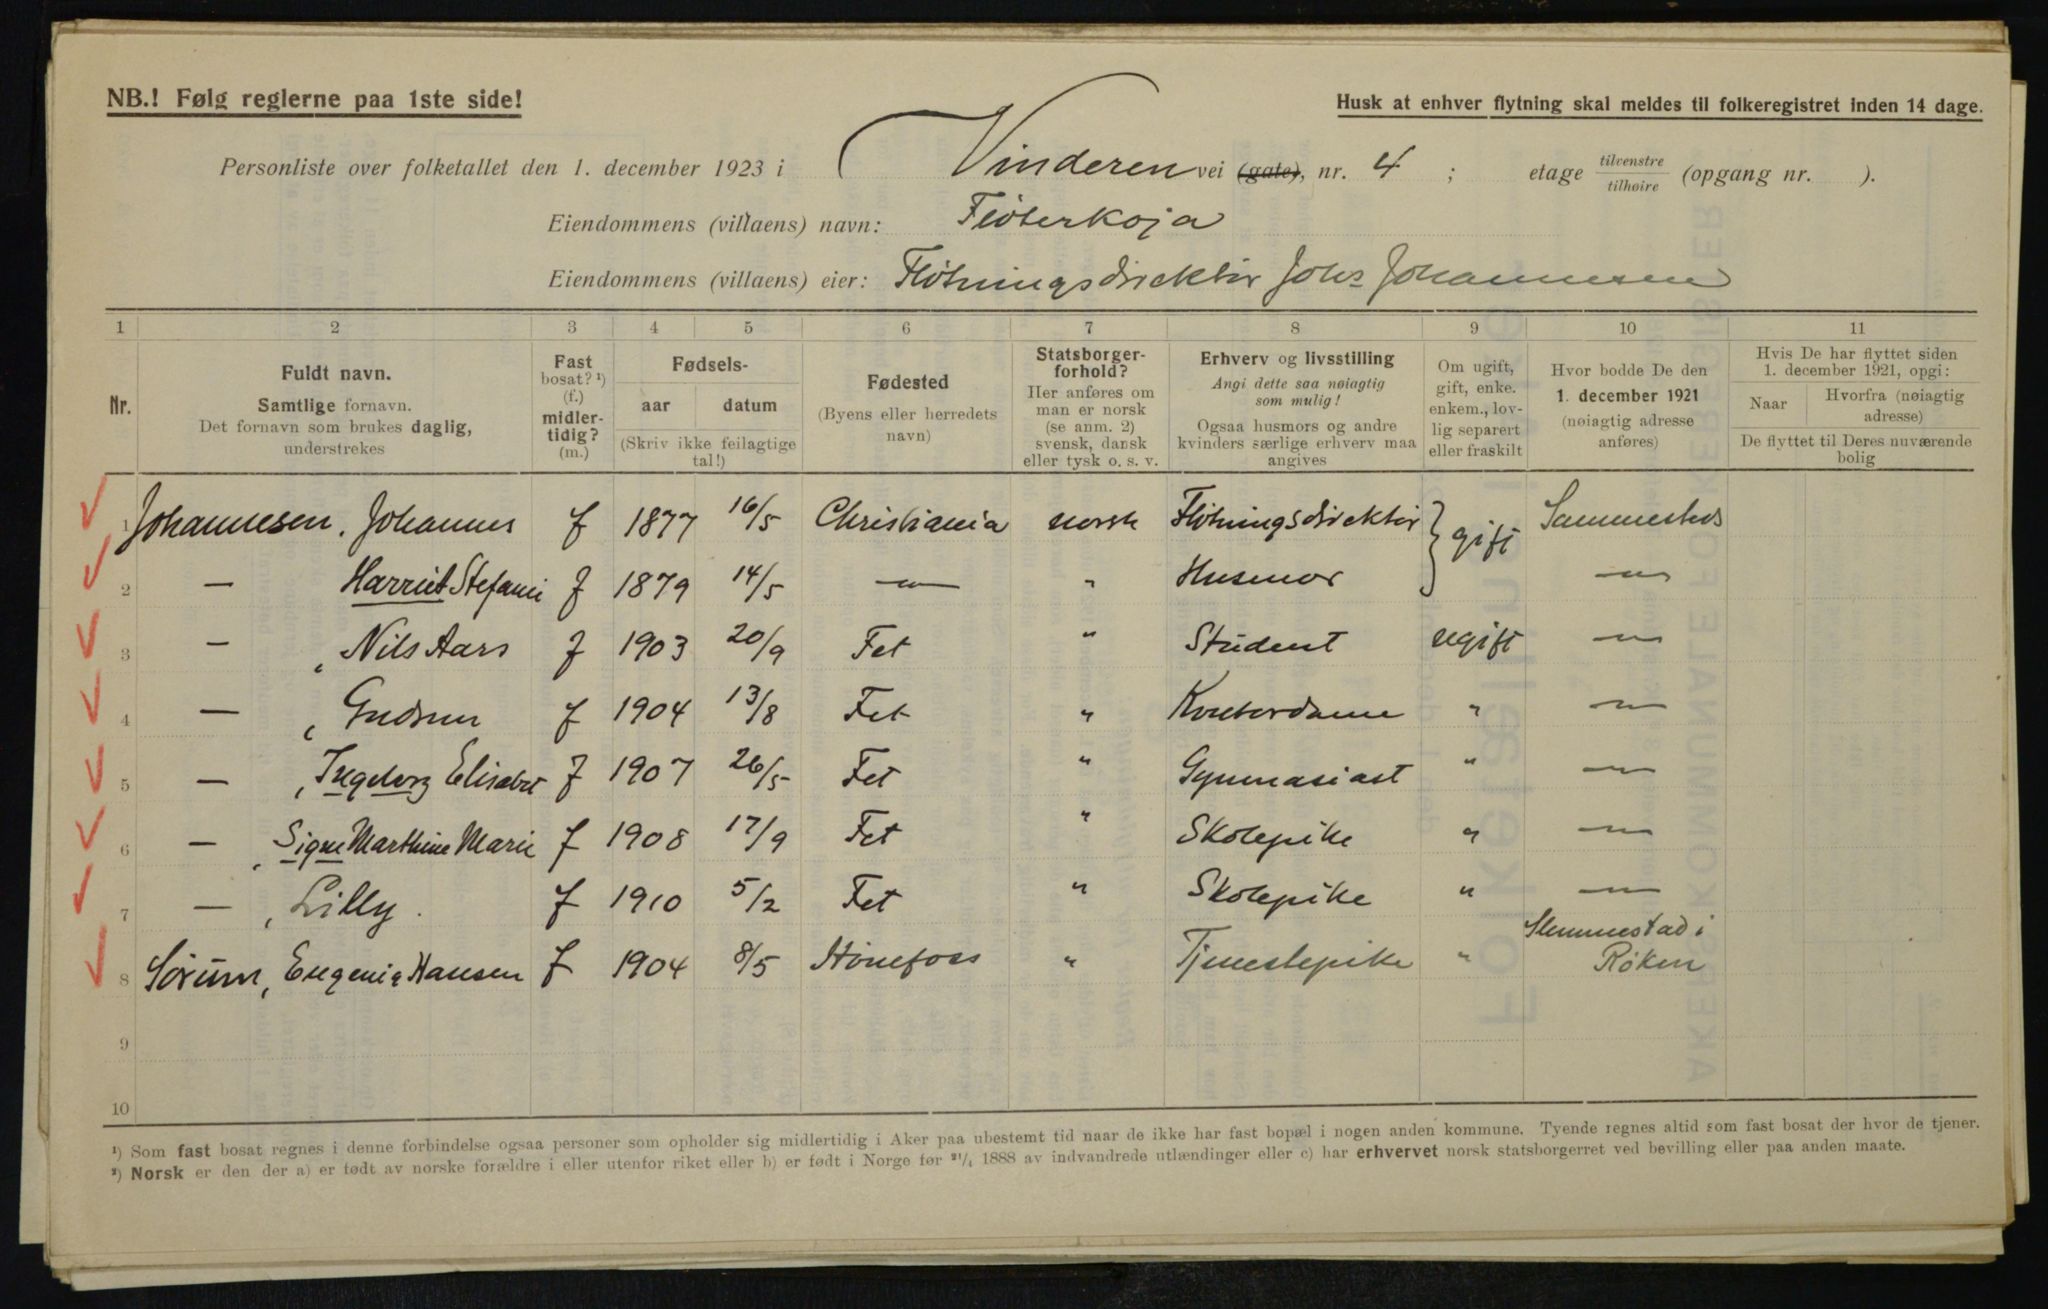 NB.! Følg reglerne paa 1ste side!
Husk at enhver flytning skal meldes til folkeregistret inden 14 dage.
Personliste over folketallet den 1. december 1923 i Vinderen vei (gate), nr. 4 ; etage tilvenstre / tilhøire (opgang nr. ).
Eiendommens (villaens) navn: Fløterkoja
Eiendommens (villaens) eier: Fløtningsdirektør Johs Johannessen
1 2 3 4 5 6 7 8 9 10 11
Nr.
Fuldt navn.
Samtlige fornavn.
Det fornavn som brukes daglig,
understrekes
Fast
bosat? ¹)
(f.)
midler-
tidig?
(m.)
Fødsels-
aar datum
(Skriv ikke feilagtige
tal!)
Fødested
(Byens eller herredets
navn)
Statsborger-
forhold?
Her anføres om
man er norsk
(se anm. 2)
svensk, dansk
eller tysk o. s. v.
Erhverv og livsstilling
Angi dette saa nøiagtig
som mulig!
Ogsaa husmors og andre
kvinders særlige erhverv maa
angives
Om ugift,
gift, enke.
enkem., lov-
lig separert
eller fraskilt
Hvor bodde De den
1. december 1921
(nøiagtig adresse
anføres)
Hvis De har flyttet siden
1. december 1921, opgi:
Naar
Hvorfra (nøiagtig
adresse)
De flyttet til Deres nuværende
bolig
1 Johannesen, Johannes f 1877 16/5 Christiania norsk Fløtningsdirektør } gift Sammesteds
2 — Harriet Stefanie f 1879 14/5 —"— " Husmor —"—
3 — , Nils Aars f 1903 20/9 Fet " Student ugift —"—
4 — , Gudrun f 1904 13/8 Fet " Kontordame " —"—
5 — , Ingeborg Elisabet f 1907 26/5 Fet " Gymnasiast " —"—
6 — , Signe Marthine Marie f 1908 17/9 Fet " Skolepike " —"—
7 — , Lilly. f 1910 5/2 Fet " Skolepike " —"—
8 Sørum, Eugenie Hansen f 1904 8/5 Hønefoss " Tjenestepike " Slemmestad i
Røken
9
10
¹) Som fast bosat regnes i denne forbindelse ogsaa personer som opholder sig midlertidig i Aker paa ubestemt tid naar de ikke har fast bopæl i nogen anden kommune. Tyende regnes altid som fast bosat der hvor de tjener.
²) Norsk er den der a) er født av norske forældre i eller utenfor riket eller b) er født i Norge før ²¹/₄ 1888 av indvandrede utlændinger eller c) har erhvervet norsk statsborgerret ved bevilling eller paa anden maate.